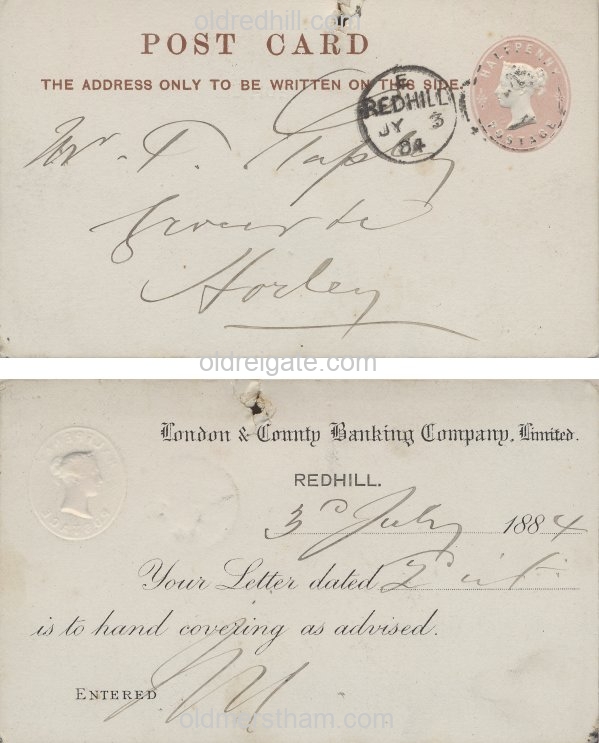 oldredhill.com
POST CARD
THE ADDRESS ONLY TO BE WRITTEN ON THIS SIDE.
HALFPENNY
POSTAGE
E
REDHILL
JY 3
84
Mr. T.
Horley
oldreigate.com
London & County Banking Company, Limited.
REDHILL.
3d July 1884
Your Letter dated 2d inst.
is to hand covering as advised.
ENTERED
oldmerstham.com